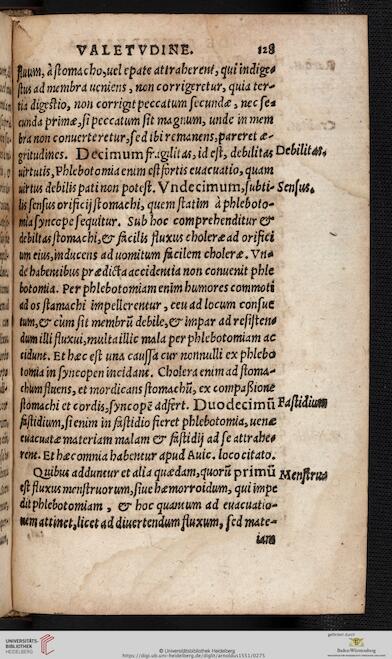 VALETVDINE. 128
fluum, à stomacho, uel epate attraherent, qui indige-
stus ad membra ueniens, non corrigeretur, quia ter-
tia digestio, non corrigit peccatum secundæ, nec se-
cunda primæ, si peccatum sit magnum, unde in mem
bra non conuerteretur, sed ibi remanens, pareret æ-
gritudines. Decimum fragilitas, id est, debilitas Debilitas.
uirtutis, Phlebotomia enim est fortis euacuatio, quam
uirtus debilis pati non potest. Vndecimum, subti- Sensus.
lis sensus orificij stomachi, quem statim à phleboto-
mia syncope sequitur. Sub hoc comprehenditur &
debilitas stomachi, & facilis fluxus choleræ ad orifici
um eius, inducens ad uomitum facilem choleræ. Vn-
de habentibus prædicta accidentia non conuenit phle
botomia. Per phlebotomiam enim humores commoti
ad os stamachi impellerentur, ceu ad locum consue
tum, & cum sit membrū debile, & impar ad resisten-
dum illi fluxui, multa illic mala per phlebotomiam ac
cidunt. Et hæc est una caussa cur nonnulli ex phlebo
tomia in syncopen incidant. Cholera enim ad stoma-
chum fluens, et mordicans stomachū, ex compaßione
stomachi et cordis, syncopē adfert. Duodecimū Fastidium
fastidium, si enim in fastidio fieret phlebotomia, uenæ
euacuatæ materiam malam & fastidij ad se attrahe-
rent. Et hæc omnia habentur apud Auic. loco citato.
Quibus adduntur et alia quædam, quorū primū Menstrua
est fluxus menstruorum, siue hæmorroidum, qui impe
dit phlebotomiam, & hoc quantum ad euacuatio-
nem attinet, licet ad diuertendum fluxum, sed mate-
iam
UNIVERSITÄTS-
BIBLIOTHEK
HEIDELBERG
© Universitätsbibliothek Heidelberg
https://digi.ub.uni-heidelberg.de/diglit/arnoldus1551/0275
gefördert durch
Baden-Württemberg